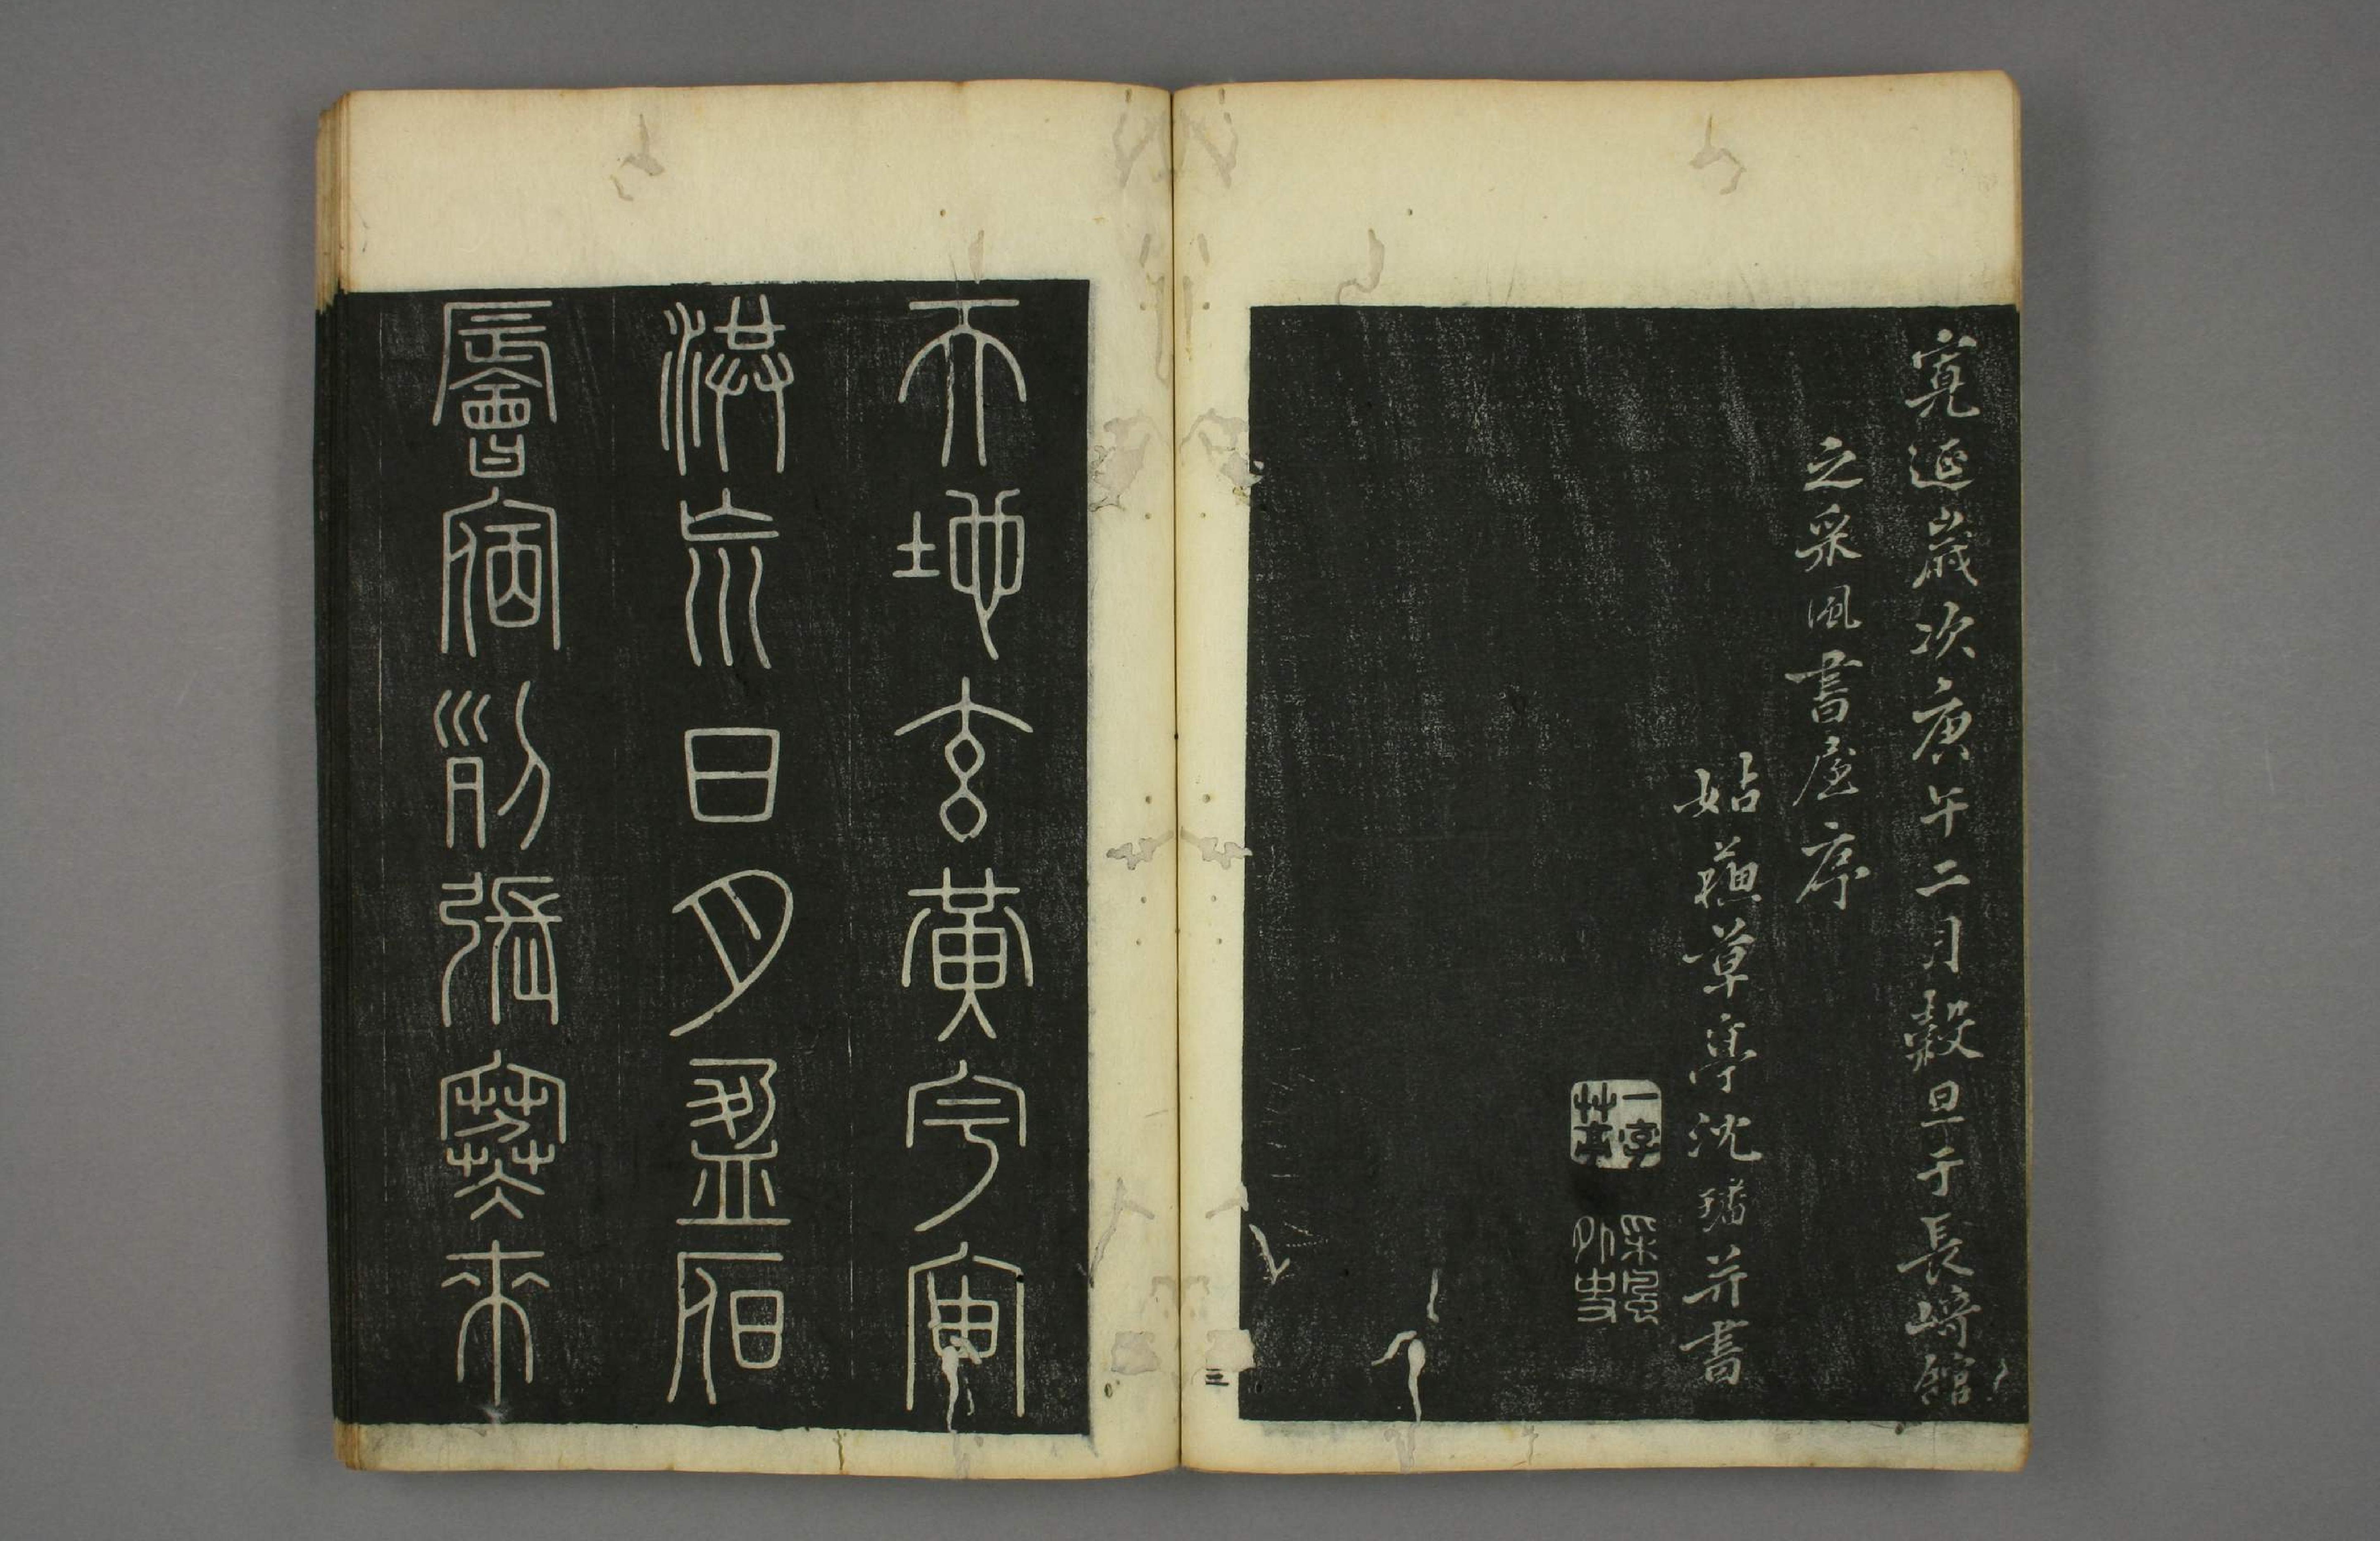 寛延歲次庚午二月穀旦于長崎館
之采風書屋序
姑蘓草亭沈璠并書
一字艸亭
采風外史
三
天地玄黃宇宙
洪荒日月盈昃
辰宿列張寒來